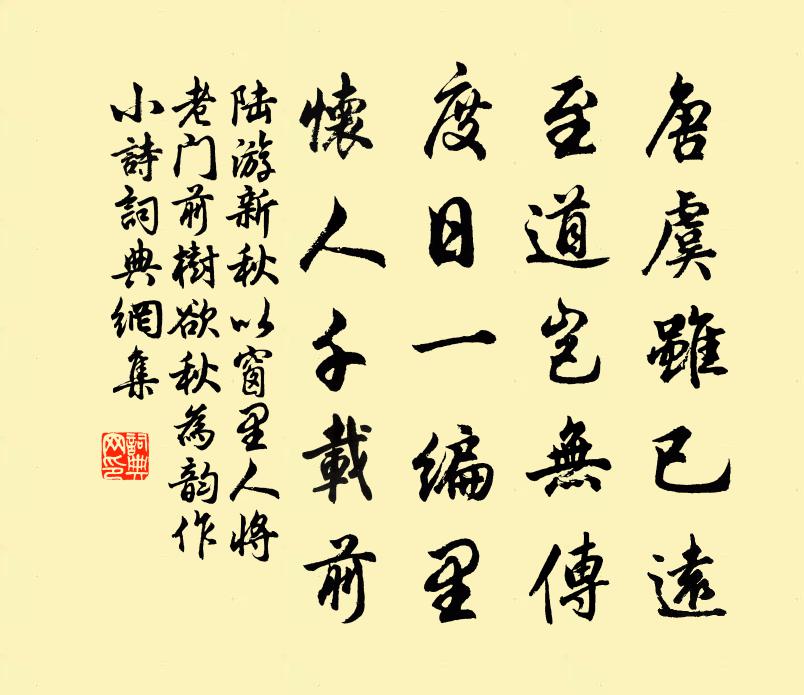 唐虞雖已遠
至道豈無傳
度日一编里
懷人千載前
陆游新秋以窗里人將
老门前樹欲秋為韵作
小詩詞典網集
詞典
网印